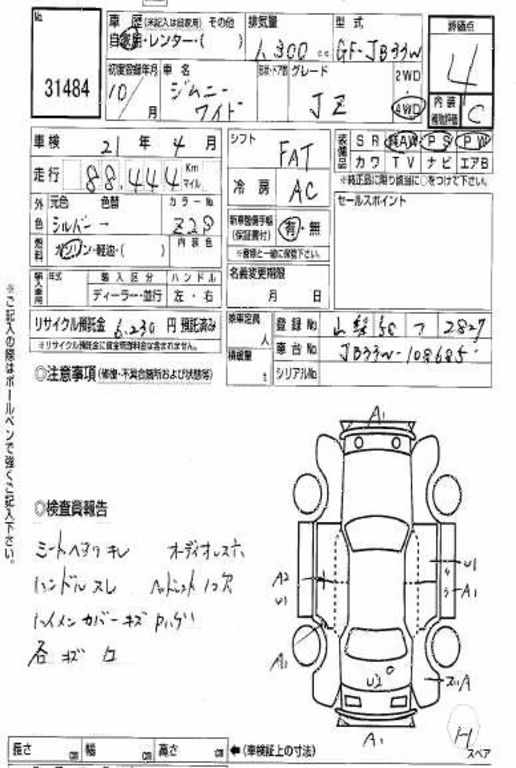 No.
31484
車歴 (未記入は自家用) その他
自家用・レンター・( )
排気量
1,300 cc
型式
GF-JB33W
評価点
4
初度登録年月
10/ 月
車名
ジムニー
ワイド
形状・ドア数
グレード
JZ
2WD
4WD
内装
補助評価
C
車検 21年 4月
シフト
FAT
装備品
SR AW PS PW
カワ TV ナビ エアB
※純正品に限り該当に○をつけて下さい。
走行 88,444 Km マイル
冷房
AC
セールスポイント
外色
元色 色替 カラーNo
シルバー→ Z2P
燃料
ガソリン・軽油・( )
内装色
新車整備手帳
(保証書付)
有・無
※書類と一緒に保管下さい。
輸入車用
年式 輸入区分 ハンドル
ディーラー・並行 左・右
名義変更期限
月 日
リサイクル預託金 6,230 円預託済み
※リサイクル預託金に資金管理料金は含まれません。
乗車定員 人
積載量 t
登録No 山梨 2827
車台No JB33W-108685
シリアルNo
◎注意事項 (修復・不具合箇所および状態等)
※ご記入の際はボールペンで強くご記入下さい。
A1
◎検査員報告
オーディオレス穴
ハンドルスレ
カバーキズ
各キズ
A2
U1
U1
A1
A1
U2
A1
スペア
長さ cm 幅 cm 高さ cm ←(車検証上の寸法)